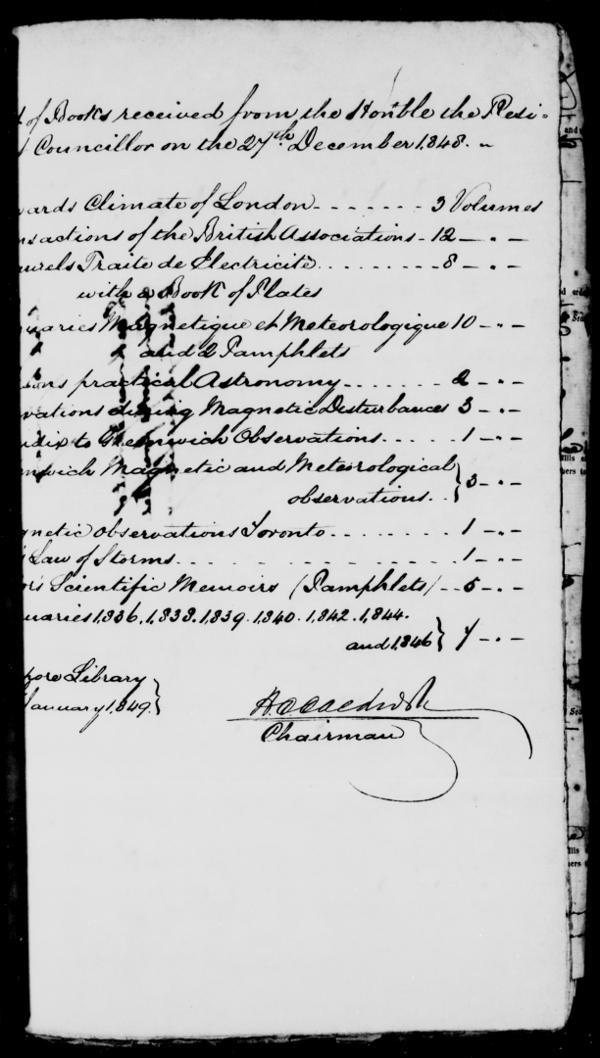 of Books received from the Honble the Resi-
Councillor on the 27th December 1848. "
wards Climate of London - - - - - - - 3 Volumes
nsactions of the British Associations - 12 - " -
uerels Traite de Electricite . . . . . . . 8 - " -
with a Book of Plates
nuaries Magnetique et Meteorologique 10 - " -
and 2 Pamphlets
sons practical Astronomy - - - - - - - 2 - " -
vations during Magnetic Disturbances 3 - " -
ndix to Greenwich Observations . . . . . 1 - " -
nwich Magnetic and Meteorological
observations . . } 3 - " -
gnetic Observations Toronto . . . . . . . . 1 - " -
s Law of Storms . . . . . . . . . . . . 1 - " -
ors Scientific Memoirs (Pamphlets) - - 5 - " -
uaries 1836. 1838. 1839. 1840. 1842. 1844.
and 1846 } 7 - " -
pore Library
January 1849. }
Chairman